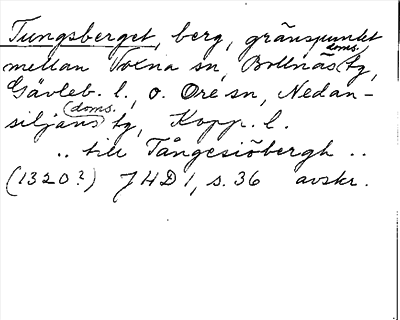 Tungsberget, berg, gränspunkt
mellan Voxna sn, Bollnäs doms. tg,
Gävleb. l., o. Ore sn, Nedan-
siljans (doms.) tg, Kopp. l.
.. till Tångesiöbergh ..
(1320?) JHD 1, s. 36 avskr.